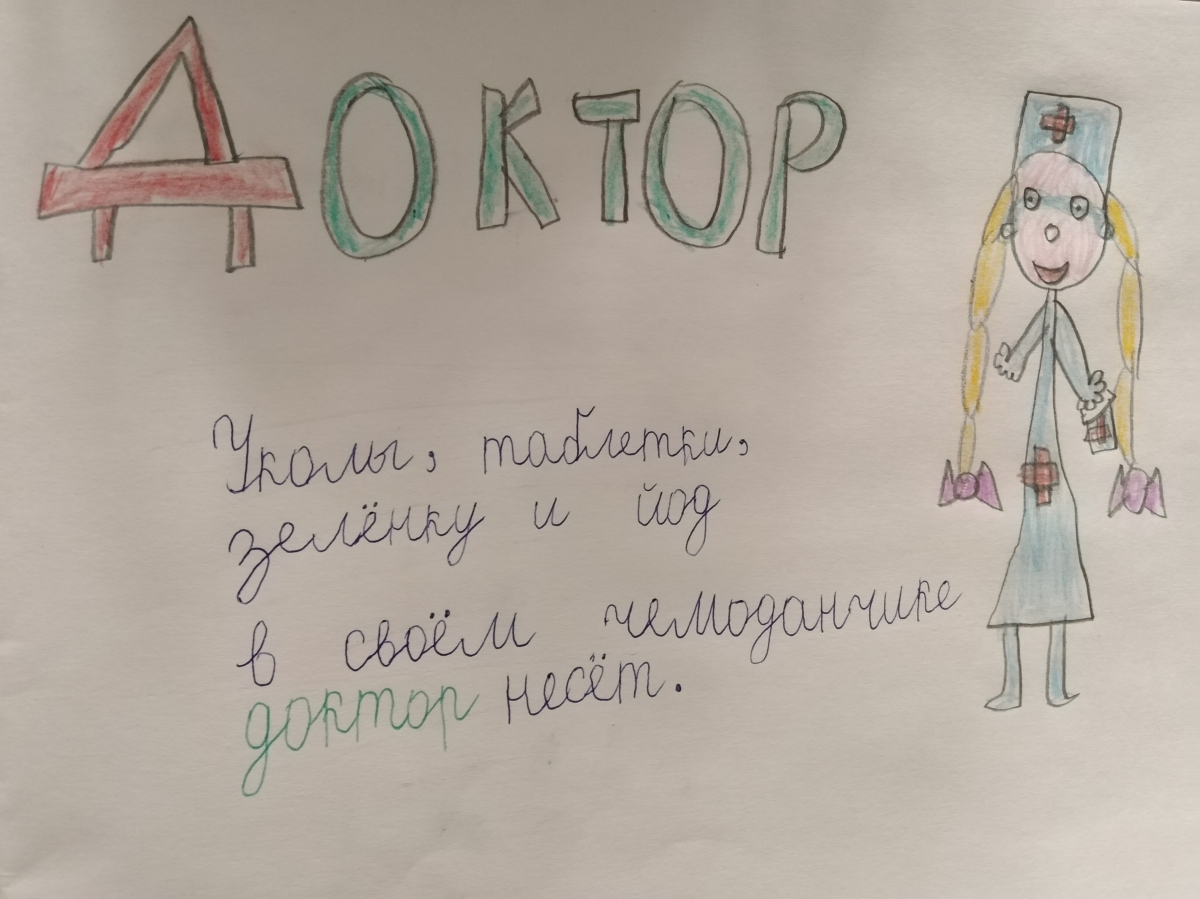 ДОКТОР
Уколы, таблетки,
зелёнку и йод
в своём чемоданчике
доктор несёт.